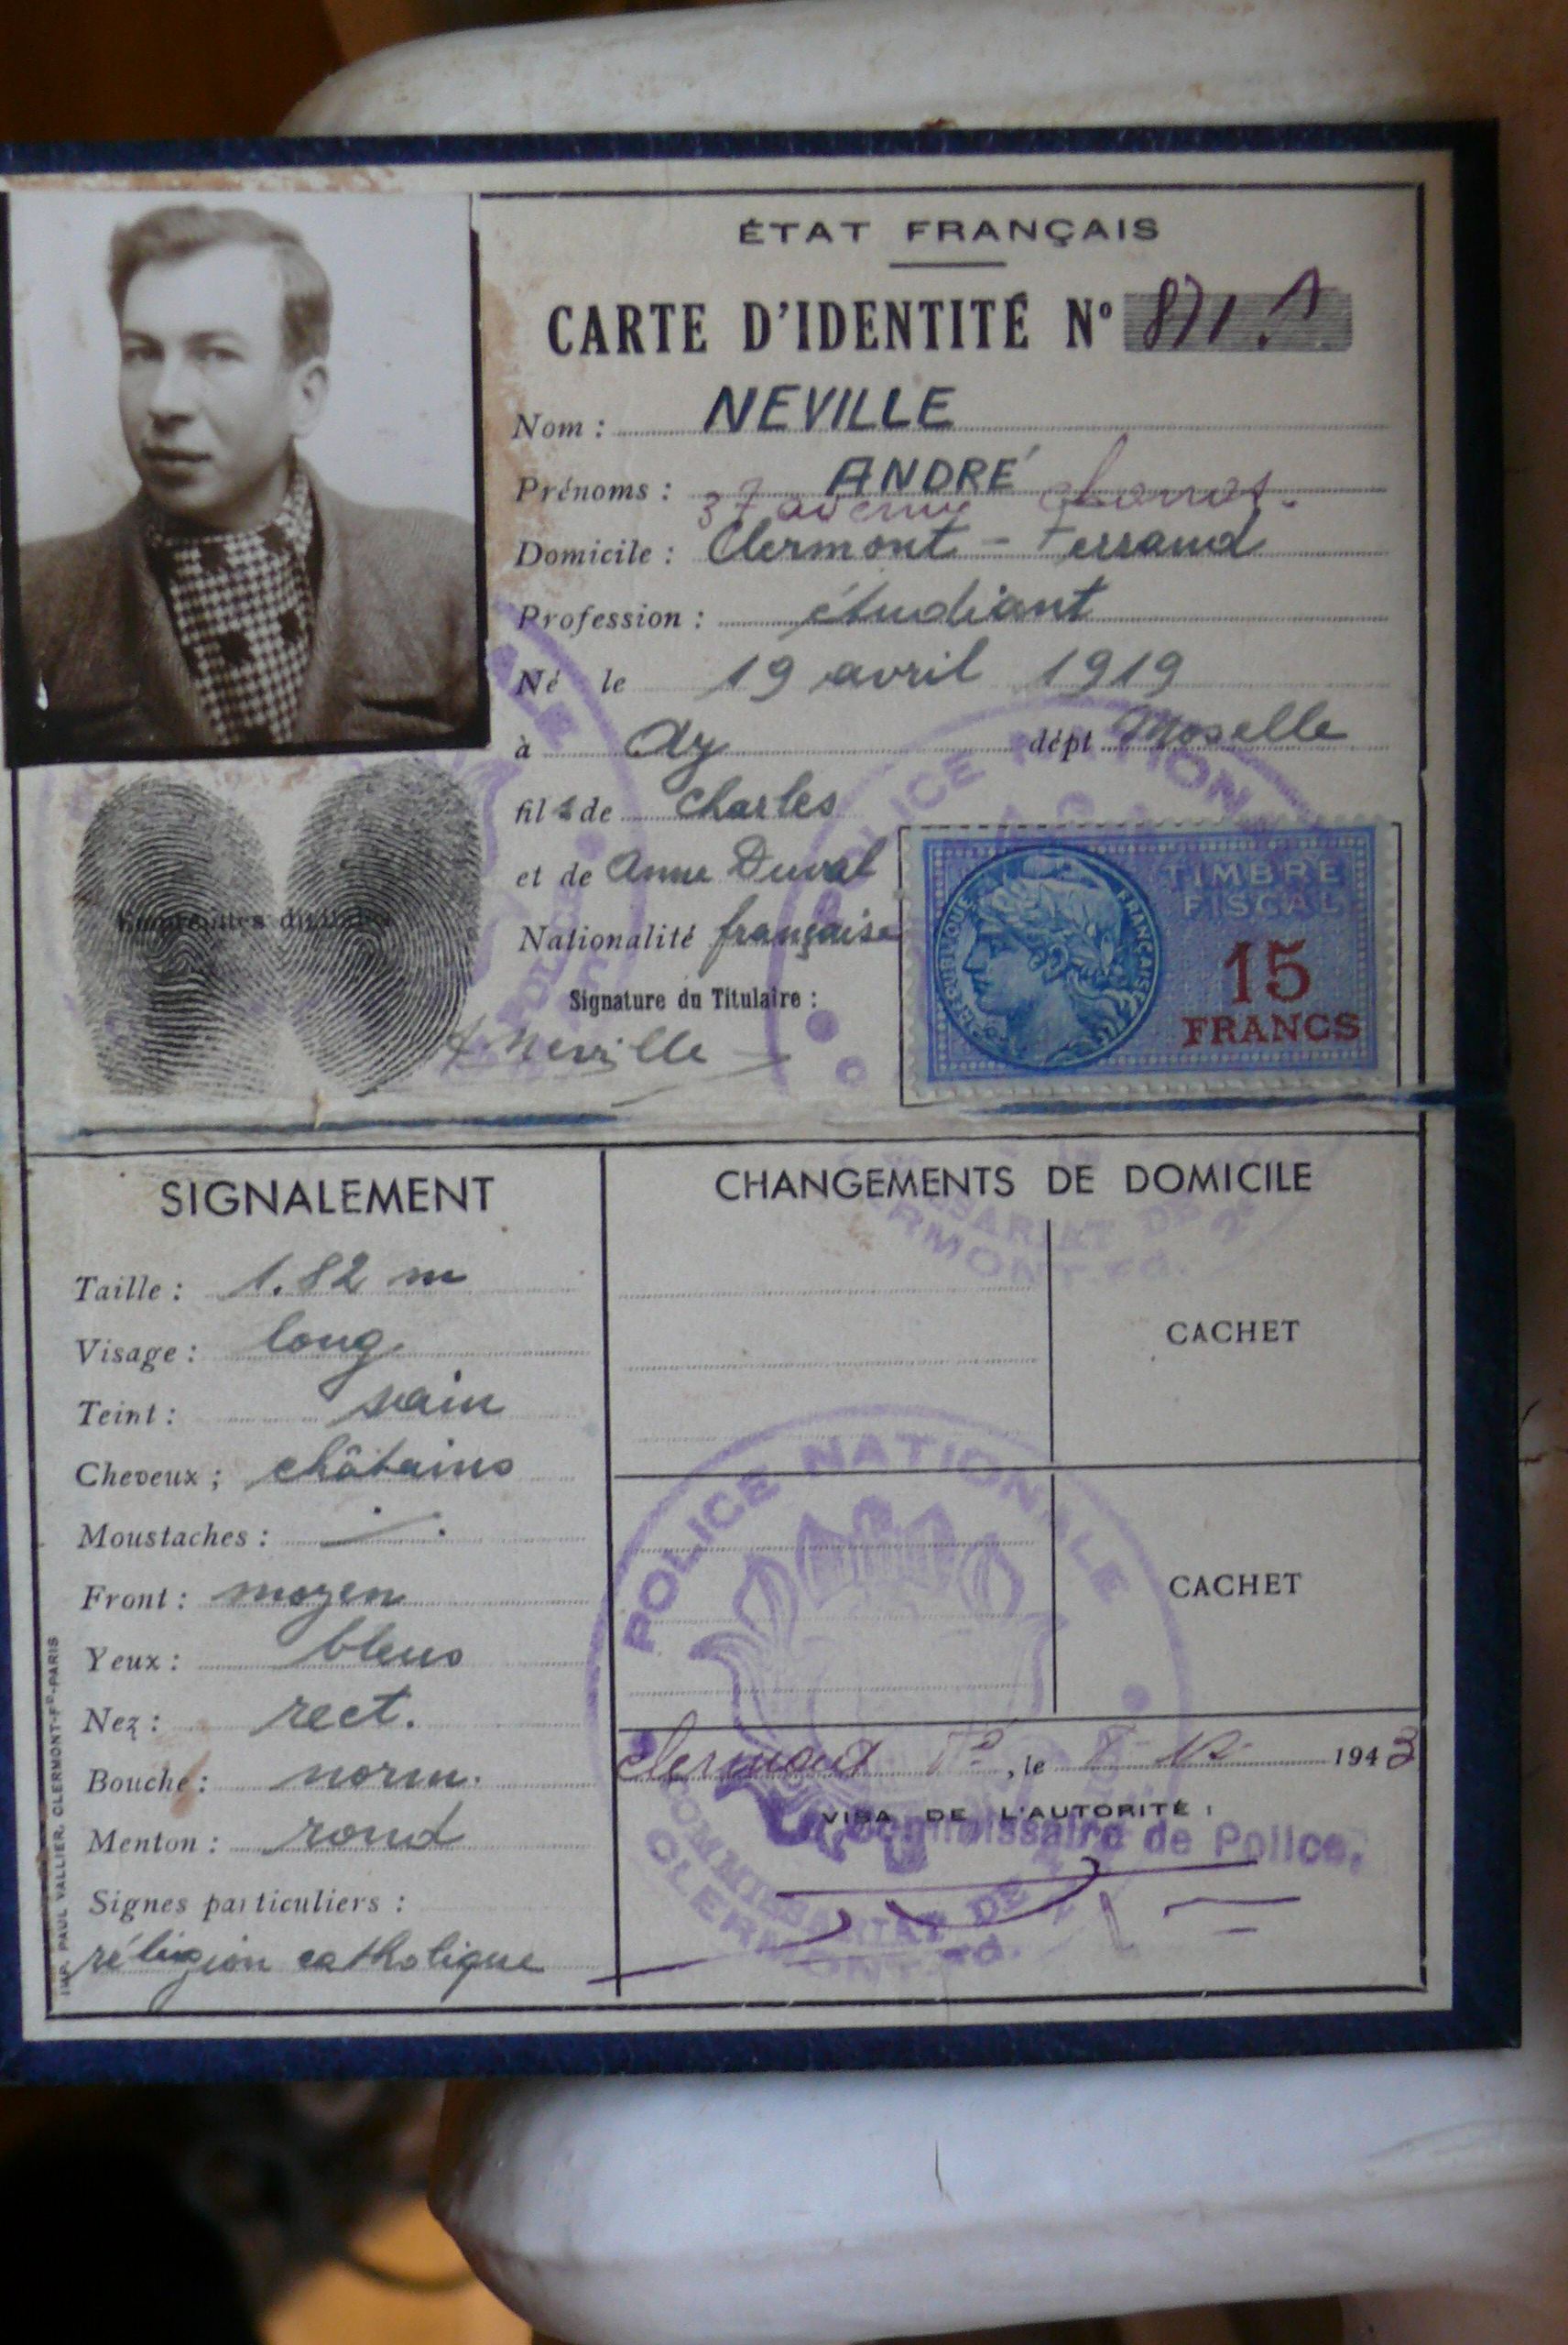 ÉTAT FRANÇAIS
CARTE D'IDENTITÉ Nº 871
Nom : NEVILLE
Prénoms : ANDRÉ
37 avenue
Domicile : Clermont - Ferrand
Profession : étudiant
Né le 19 avril 1919
à Ay dépt Moselle
fils de Charles
et de Anne Duval
Nationalité française
Signature du Titulaire :
A. Neville
Empreintes digitales
RÉPUBLIQUE FRANÇAISE
TIMBRE
FISCAL
15
FRANCS
POLICE NATIONALE
SIGNALEMENT
Taille : 1.82 m
Visage : long
Teint : sain
Cheveux ; châtains
Moustaches :
Front : moyen
Yeux : bleus
Nez : rect.
Bouche : norm.
Menton : rond
Signes particuliers :
réligion catholique
IMP. PAUL VALLIER, CLERMONT-Fᴰ-PARIS
CHANGEMENTS DE DOMICILE
CACHET
CACHET
POLICE NATIONALE
COMMISSARIAT DE
CLERMONT-Fd.
Clermont Fd, le 8-12- 1943
VISA DE L'AUTORITÉ :
Commissaire de Police,